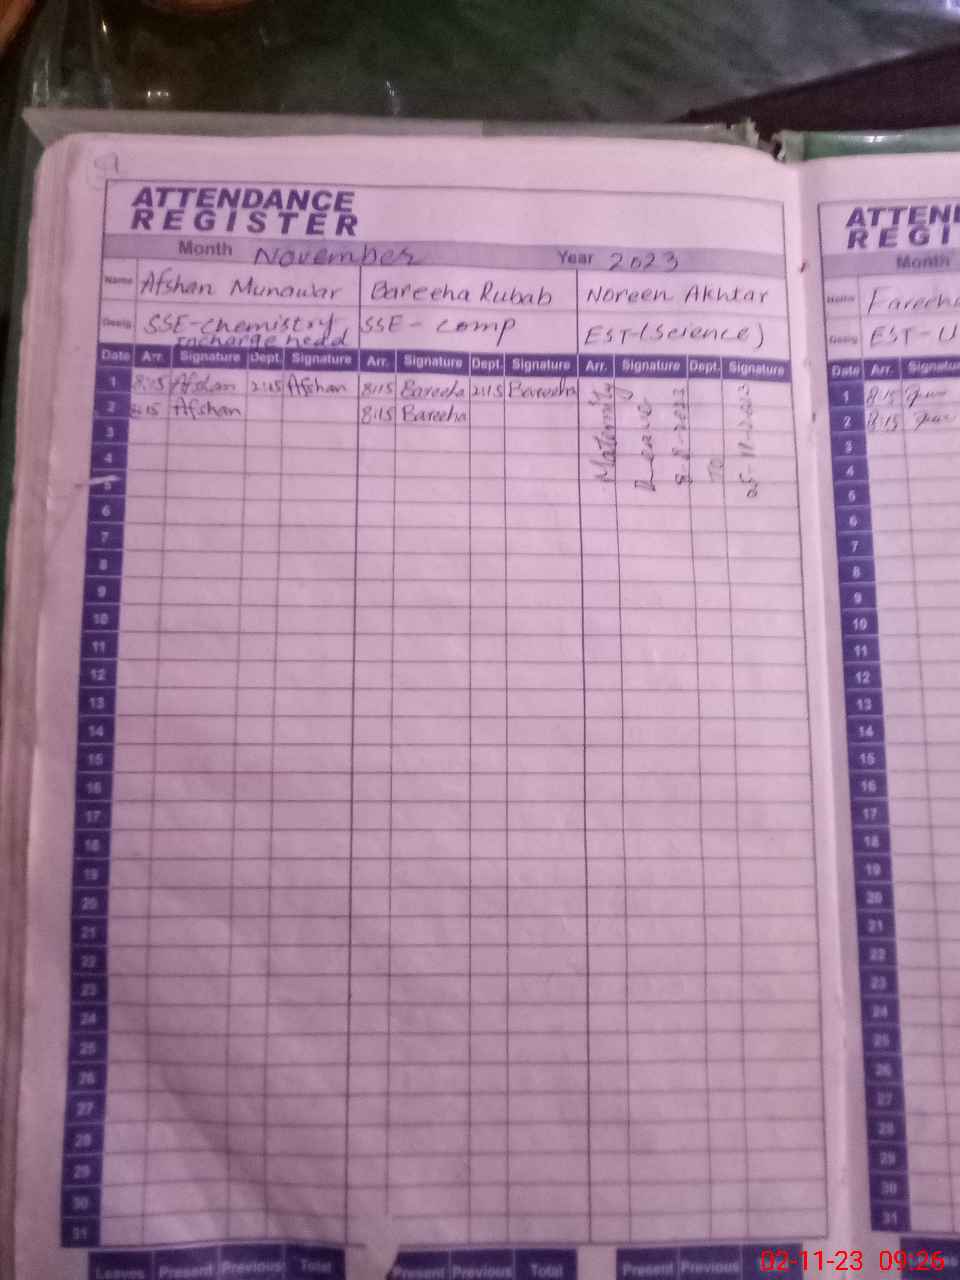 9
ATTENDANCE
REGISTER
Month November Year 2023
Name Afshan Munawar Bareeha Rubab Noreen Akhtar
Desig SSE-Chemistry SSE - Comp EST-(Science)
incharge head
Date Arr. Signature Dept. Signature Arr. Signature Dept. Signature Arr. Signature Dept. Signature
1 8:15 Afshan 2:15 Afshan 8:15 Bareeha 2:15 Bareeha
2 8:15 Afshan 8:15 Bareeha
Maternity
Leave
8-8-2023
To
25-11-2023
3
4
5
6
7
8
9
10
11
12
13
14
15
16
17
18
19
20
21
22
23
24
25
26
27
28
29
30
31
Leaves Present Previous Total Present Previous Total Present Previous
ATTEN
REGI
Month
Name Fareeha
Desig EST-U
Date Arr. Signatu
1 8:15
2 8:15
3
4
5
6
7
8
9
10
11
12
13
14
15
16
17
18
19
20
21
22
23
24
25
26
27
28
29
30
31
02-11-23 09:26